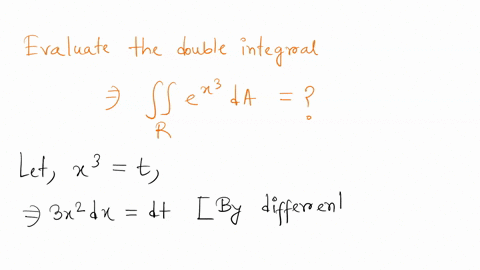 Evaluate the double integral
⇒ ∬_R e^{x^3} dA = ?
Let, x^3 = t,
⇒ 3x^2 dx = dt [By differen